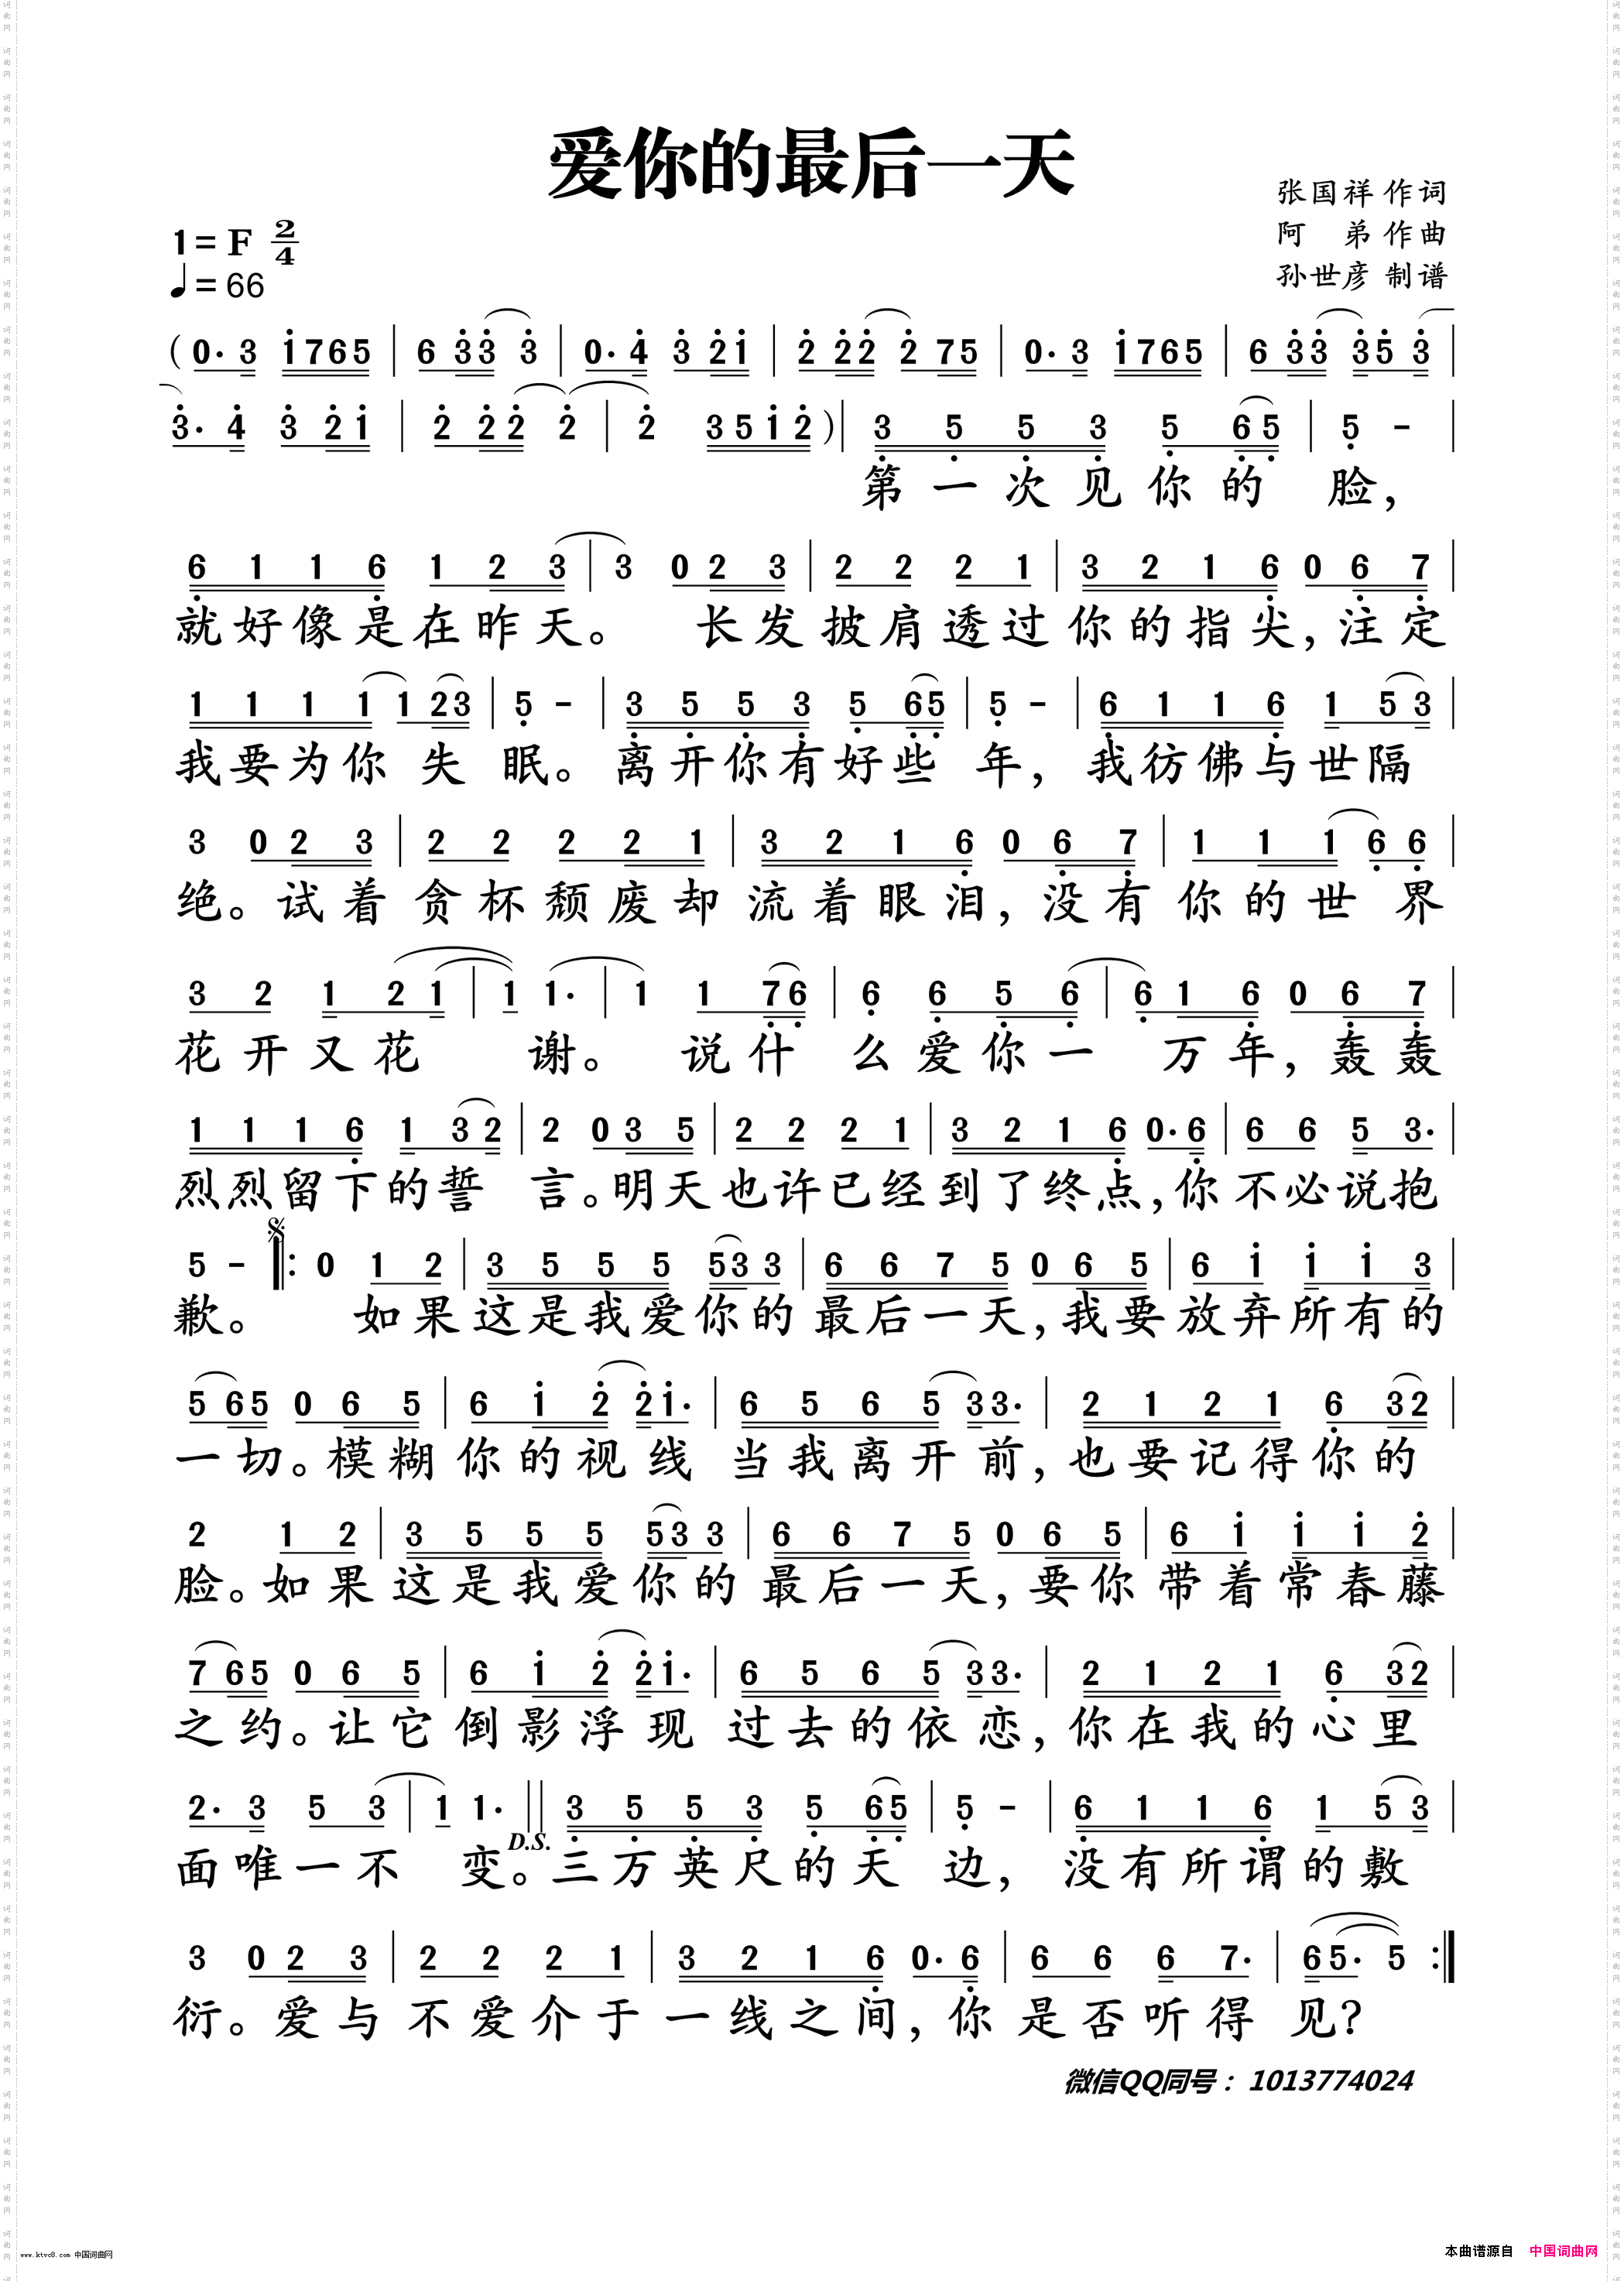 爱你的最后一天
张国祥 作词
阿 弟 作曲
孙世彦 制谱
1= F 2/4
♩= 66
(0· 3 1765 | 6 33 3 | 0· 4 3 21 | 2 22 2 75 | 0· 3 1765 | 6 33 35 3 |
3· 4 3 21 | 2 22 2 | 2 3512 )| 3 5 5 3 5 65 | 5 - |
第一次见你的 脸，
6 1 1 6 1 2 3 | 3 0 2 3 | 2 2 2 1 | 3 2 1 6 0 6 7 |
就好像是在昨天。 长发披肩透过你的指尖，注定
1 1 1 1 1 23 | 5 - | 3 5 5 3 5 65 | 5 - | 6 1 1 6 1 5 3 |
我要为你 失 眠。离开你有好些 年，我彷佛与世隔
3 0 2 3 | 2 2 2 2 1 | 3 2 1 6 0 6 7 | 1 1 1 6 6 |
绝。试着贪杯颓废却流着眼泪，没有你的世 界
3 2 1 2 1 | 1 1· | 1 1 76 | 6 6 5 6 | 6 1 6 0 6 7 |
花开又花 谢。 说什么爱你一 万年，轰轰
1 1 1 6 1 3 2 | 2 0 3 5 | 2 2 2 1 | 3 2 1 6 0· 6 | 6 6 5 3· |
烈烈留下的誓 言。明天也许已经到了终点，你不必说抱
5 - 𝄋 |: 0 1 2 | 3 5 5 5 53 3 | 6 6 7 5 0 6 5 | 6 1 1 1 3 |
歉。 如果这是我爱你的最后一天，我要放弃所有的
5 65 0 6 5 | 6 1 2 21· | 6 5 6 5 33· | 2 1 2 1 6 32 |
一切。模糊你的视线当我离开前，也要记得你的
2 1 2 | 3 5 5 5 53 3 | 6 6 7 5 0 6 5 | 6 1 1 1 2 |
脸。如果这是我爱你的最后一天，要你带着常春藤
7 65 0 6 5 | 6 1 2 21· | 6 5 6 5 33· | 2 1 2 1 6 32 |
之约。让它倒影浮现过去的依恋，你在我的心里
2· 3 5 3 | 1 1· || 3 5 5 3 5 65 | 5 - | 6 1 1 6 1 5 3 |
D.S.
面唯一不 变。三万英尺的天 边，没有所谓的敷
3 0 2 3 | 2 2 2 1 | 3 2 1 6 0· 6 | 6 6 6 7· | 65· 5 :|
衍。爱与不爱介于一线之间，你是否听得 见？
微信QQ同号：1013774024
www.ktvc8.com 中国词曲网
本曲谱源自 中国词曲网